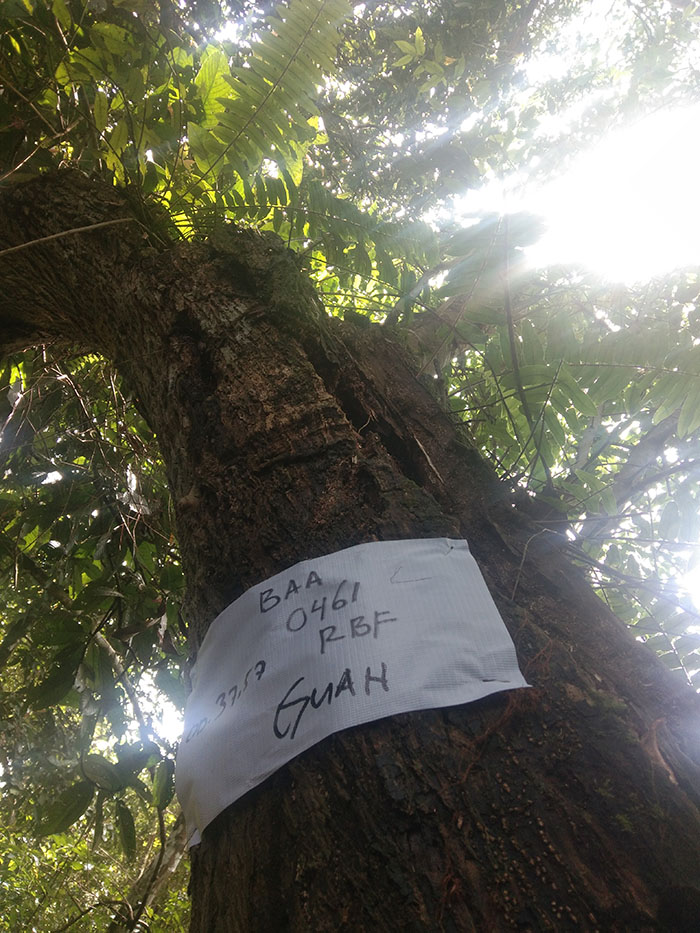 BAA
0461
RBF
00.37.57
GUAH